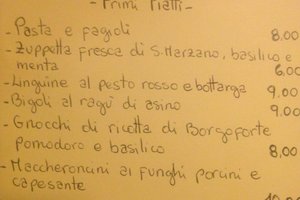 - Primi Piatti -
- Pasta e fagioli 8.00
- Zuppetta fresca di S. Marzano, basilico e
menta 6.00
- Linguine al pesto rosso e bottarga 9.00
- Bigoli al ragù di asino 9.00
- Gnocchi di ricotta di Borgoforte
pomodoro e basilico 8,00
- Maccheroncini ai funghi porcini e
capesante